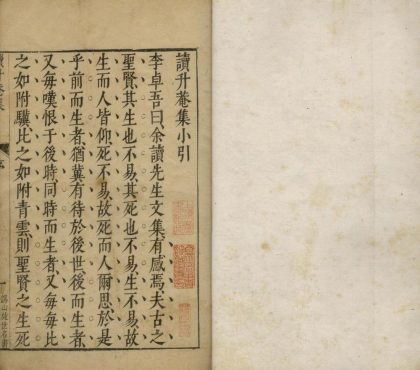 讀升菴集小引
李卓吾曰余讀先生文集有感焉夫古之
聖賢其生也不易其死也不易生不易故
生而人皆仰死不易故死而人爾思於是
乎前而生者猶冀有待於後世後而生者
又每嘆恨于後時同時而生者又每每比
之如附驥比之如附青雲則聖賢之生死
讀升菴集